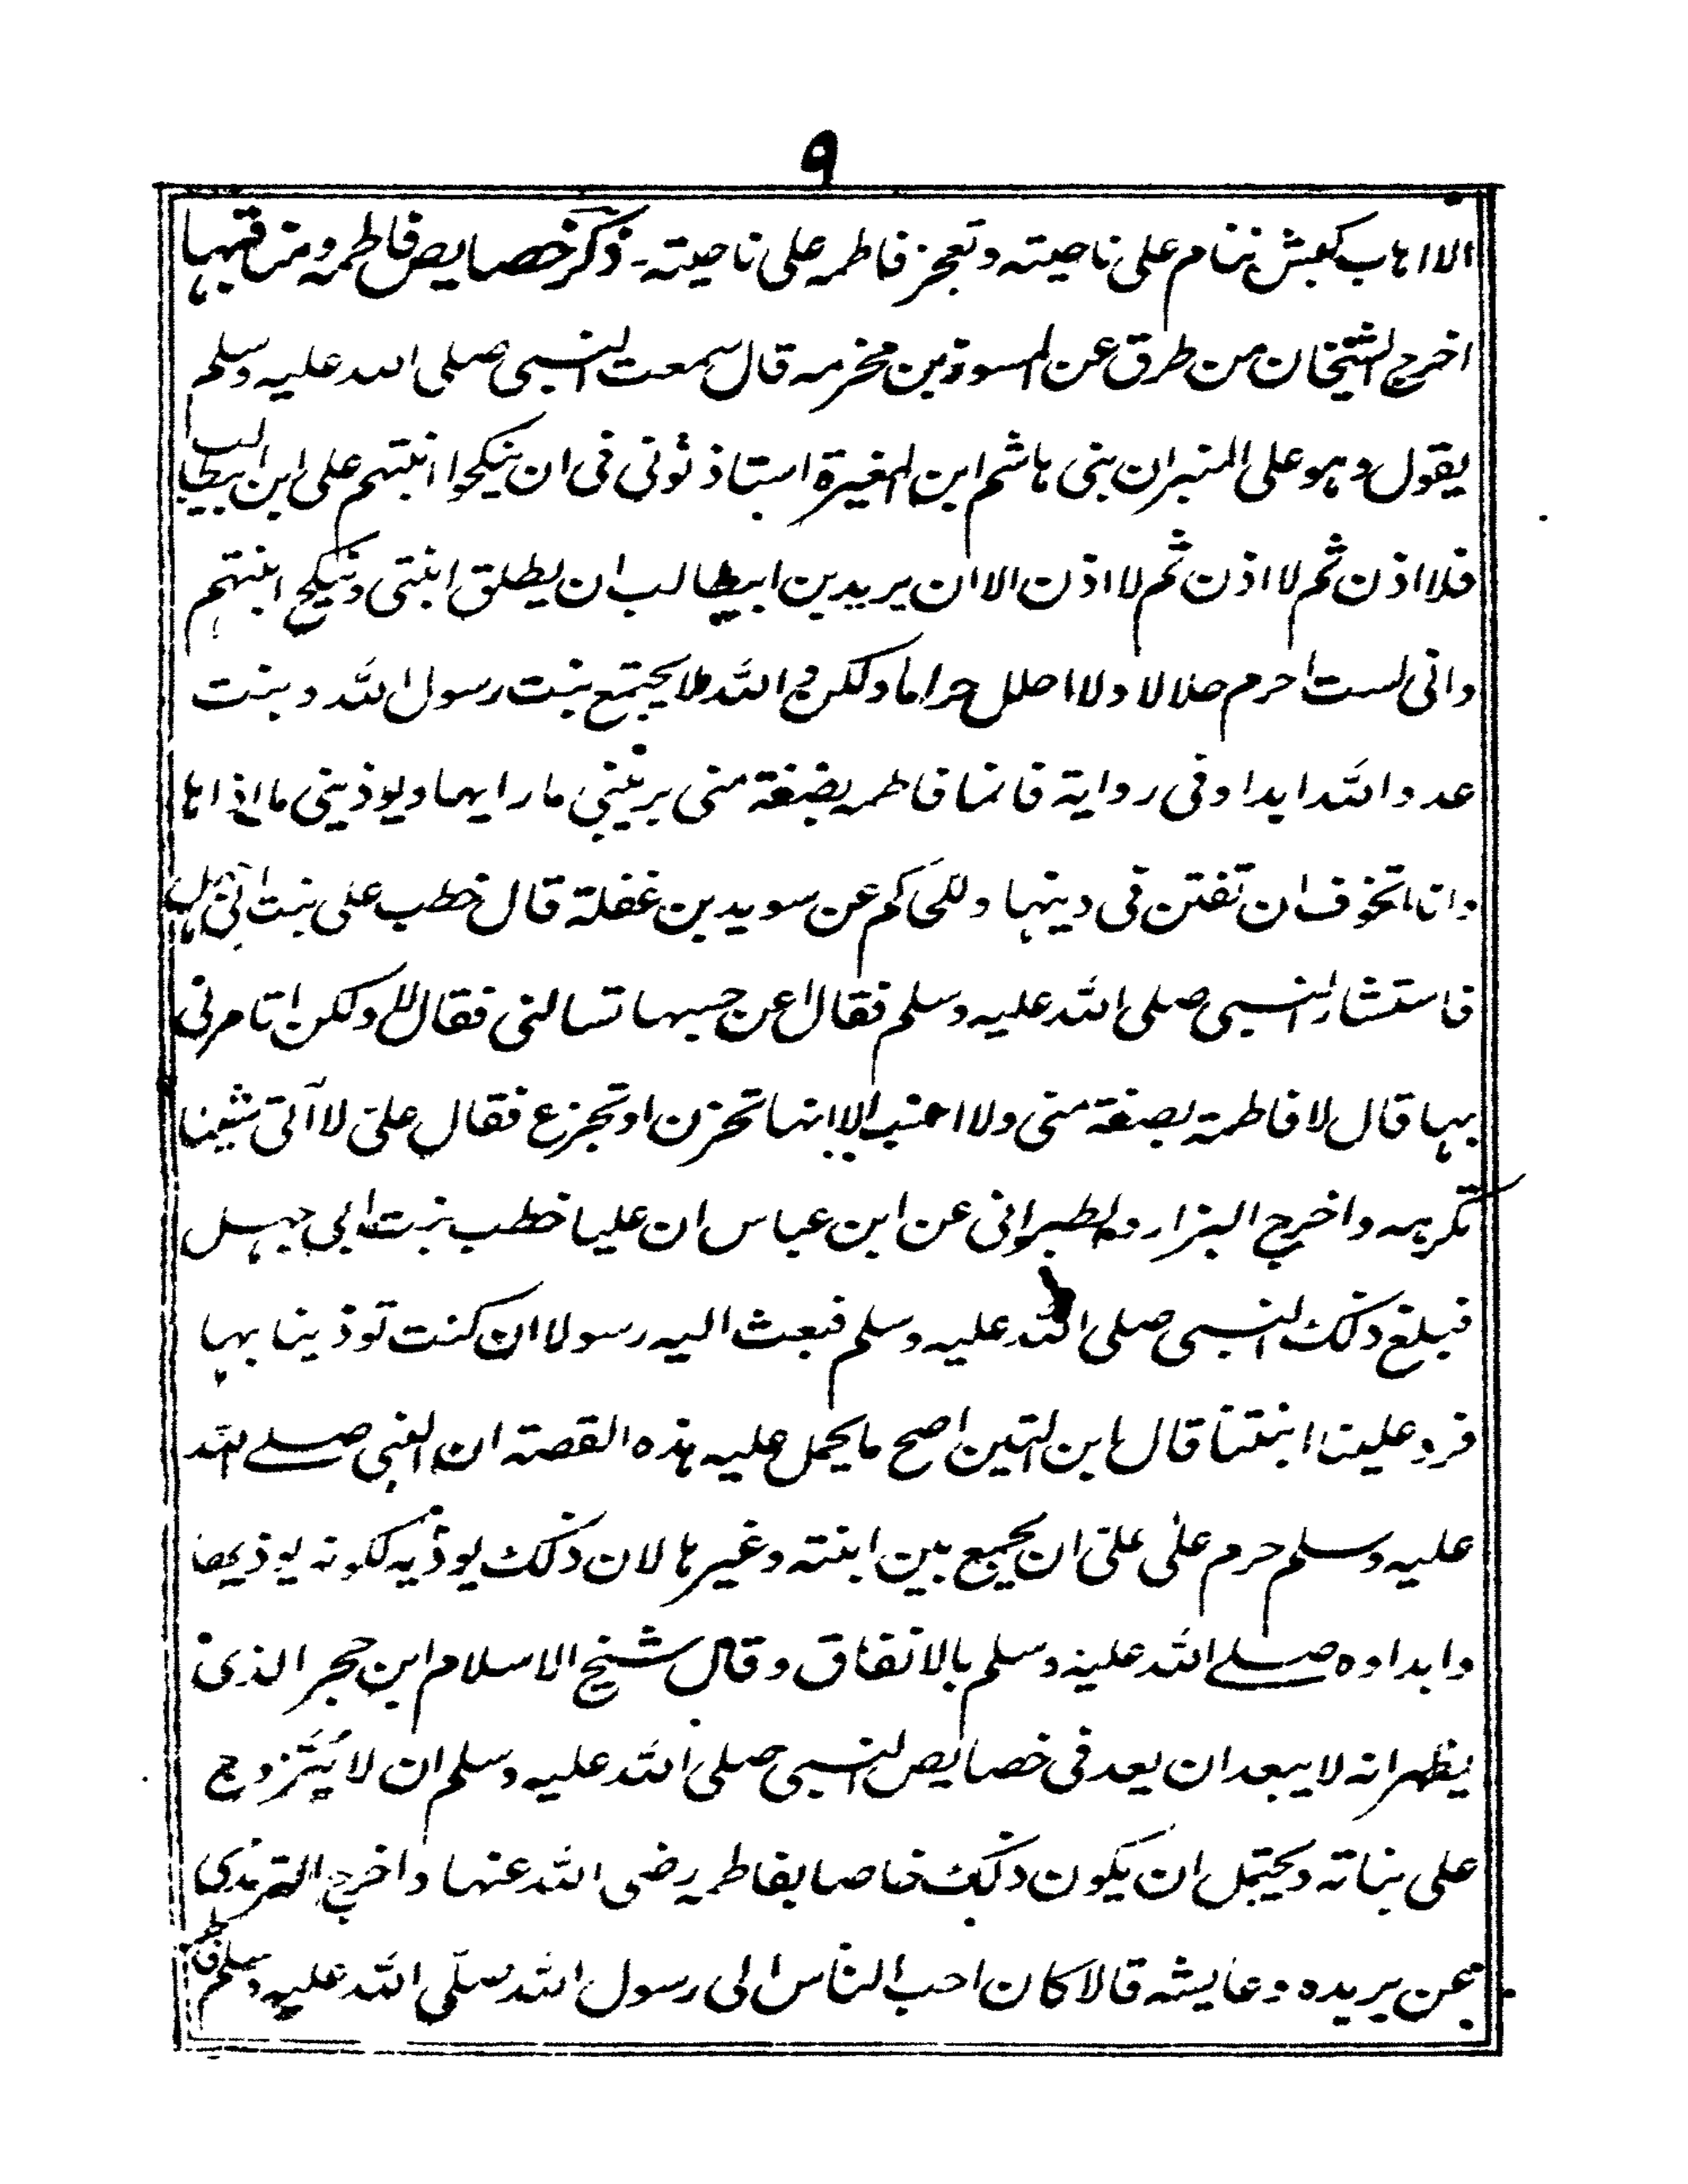 ٩
الا اهاب كبش ننام على ناحيته وتعجز فاطمه على ناحيته ـ ذكر خصايص فاطمه ومناقبها
اخرج الشيخان من طرق عن المسورة بن مخرمه قال سمعت النبى صلى الله عليه وسلم
يقول وهو على المنبر ان بنى هاشم ابن المغيرة استاذنونى فى ان ينكحوا ابنتهم على ابن ابيطالب
فلا اذن ثم لا اذن ثم لا اذن الا ان يريد بن ابيطالب ان يطلق ابنتى وينكح ابنتهم
وانى لست احرم حلالا ولا احلل حراما ولكن والله لا يجتمع بنت رسول الله وبنت
عدو الله ابدا وفى رواية فانما فاطمه بضغة منى يريبنى ما رابها ويوذينى ما اذاها
وانا اتخوف ان تفتن فى دينها وللحاكم عن سويد بن غفلة قال خطب على بنت ابى جهل
فاستشار النبى صلى الله عليه وسلم فقال اعن حسبها تسالنى فقال لا ولكن اتامرنى
بها قال لا فاطمة بضغة منى ولا احسب الا انها تحزن او تجزع فقال على لا آتى شيئا
تكرهه واخرج البزار والطبرانى عن ابن عباس ان عليا خطب بنت ابى جهل
فبلغ ذلك النبى صلى الله عليه وسلم فبعث اليه رسولا ان كنت توذينا بها
فرد علينا ابنتنا قال ابن التين اصح ما يحمل عليه هذه القصة ان النبى صلے الله
عليه وسلم حرم على علىّ ان يجمع بين ابنته وغيرها لان ذلك يوذيه لكونه يوذيها
وابداوه صلے الله عليه وسلم بالاتفاق وقال شيخ الاسلام ابن حجر الذى
يظهر انه لا يبعد ان يعد فى خصايص النبى صلى الله عليه وسلم ان لا يتزوج
على بناته ويحتمل ان يكون ذلك خاصا بفاطمه رضى الله عنها واخرج الترمذى
عن بريده وعايشه قالا كان احب الناس الى رسول الله صلّى الله عليه وسلم